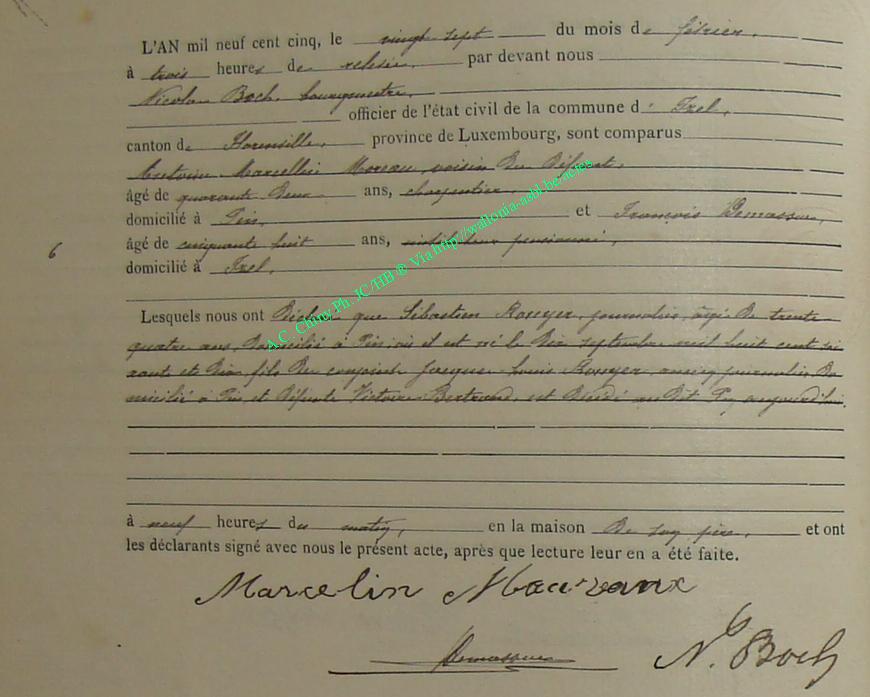 L'AN mil neuf cent cinq, le vingt sept du mois de février,
à trois heures de relevée, par devant nous
Nicolas Boch, bourgmestre,
officier de l'état civil de la commune d'Izel,
canton de Florenville, province de Luxembourg, sont comparus
Antoine Marcellin Moreau, voisin du défunt,
âgé de quarante deux ans, charpentier,
domicilié à Pin, et François Demasure,
âgé de cinquante huit ans, instituteur pensionné,
domicilié à Izel,
6
Lesquels nous ont déclaré que Sébastien Rouyer, journalier, âgé de trente
quatre ans, domicilié à Pin, où il est né le dix septembre mil huit cent soi
xante et dix, fils des conjoints Jacques-Louis Rouyer, ancien journalier, do
micilié à Pin, et défunte Victoire Bertrand, est décédé au dit Pin, aujourd'hui,
à neuf heures du matin, en la maison de son père, et ont
les déclarants signé avec nous le présent acte, après que lecture leur en a été faite.
Marcelin
N. Boch
A.C. Chiny Ph. JC/HB ® Via http://wallonia-asbl.be/actes